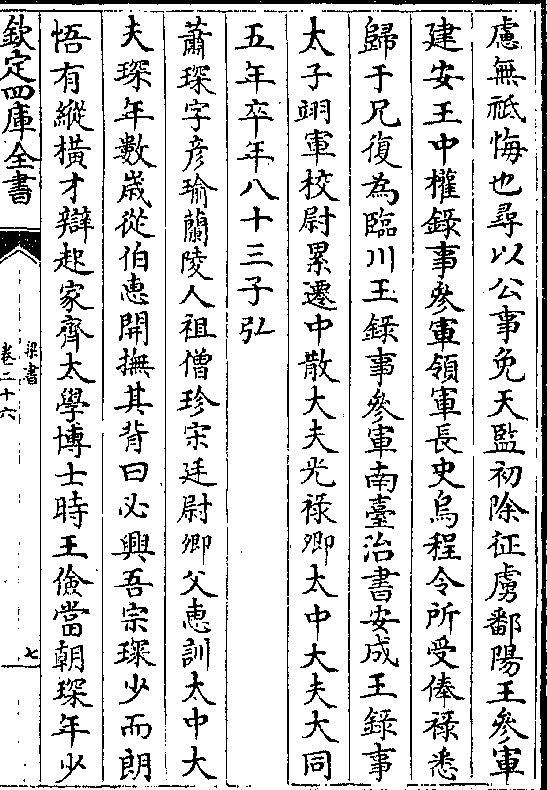 慮無祗悔也尋以公事免天監初除征虜鄱陽王參軍
建安王中權錄事參軍領軍長史烏程令所受俸祿悉
歸于兄復為臨川王錄事參軍南臺治書安成王錄事
太子翊軍校尉累遷中散大夫光祿卿太中大夫大同
五年卒年八十三子弘
蕭琛字彥瑜蘭陵人祖僧珍宋廷尉卿父惠訓太中大
夫琛年數歲從伯惠開撫其背曰必興吾宗琛少而朗
悟有縱橫才辯起家齊太學博士時王儉當朝琛年少
欽定四庫全書
梁書
卷二十六
七